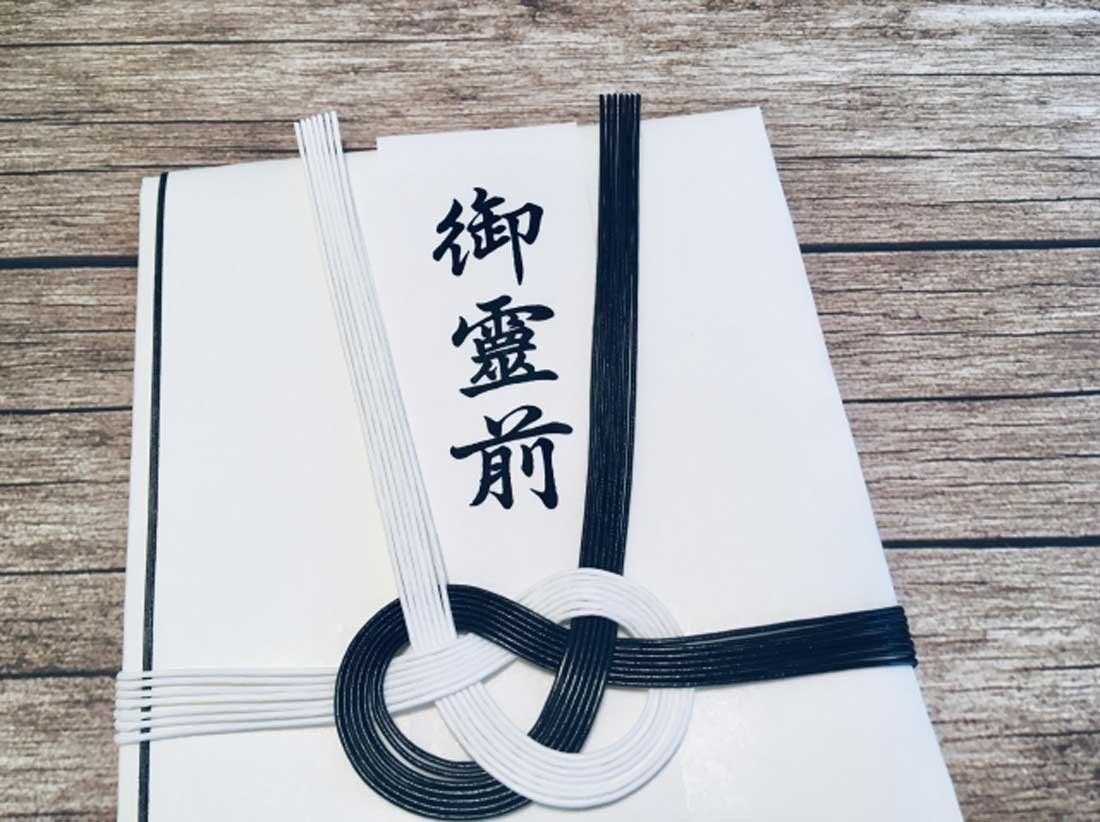 御靈前